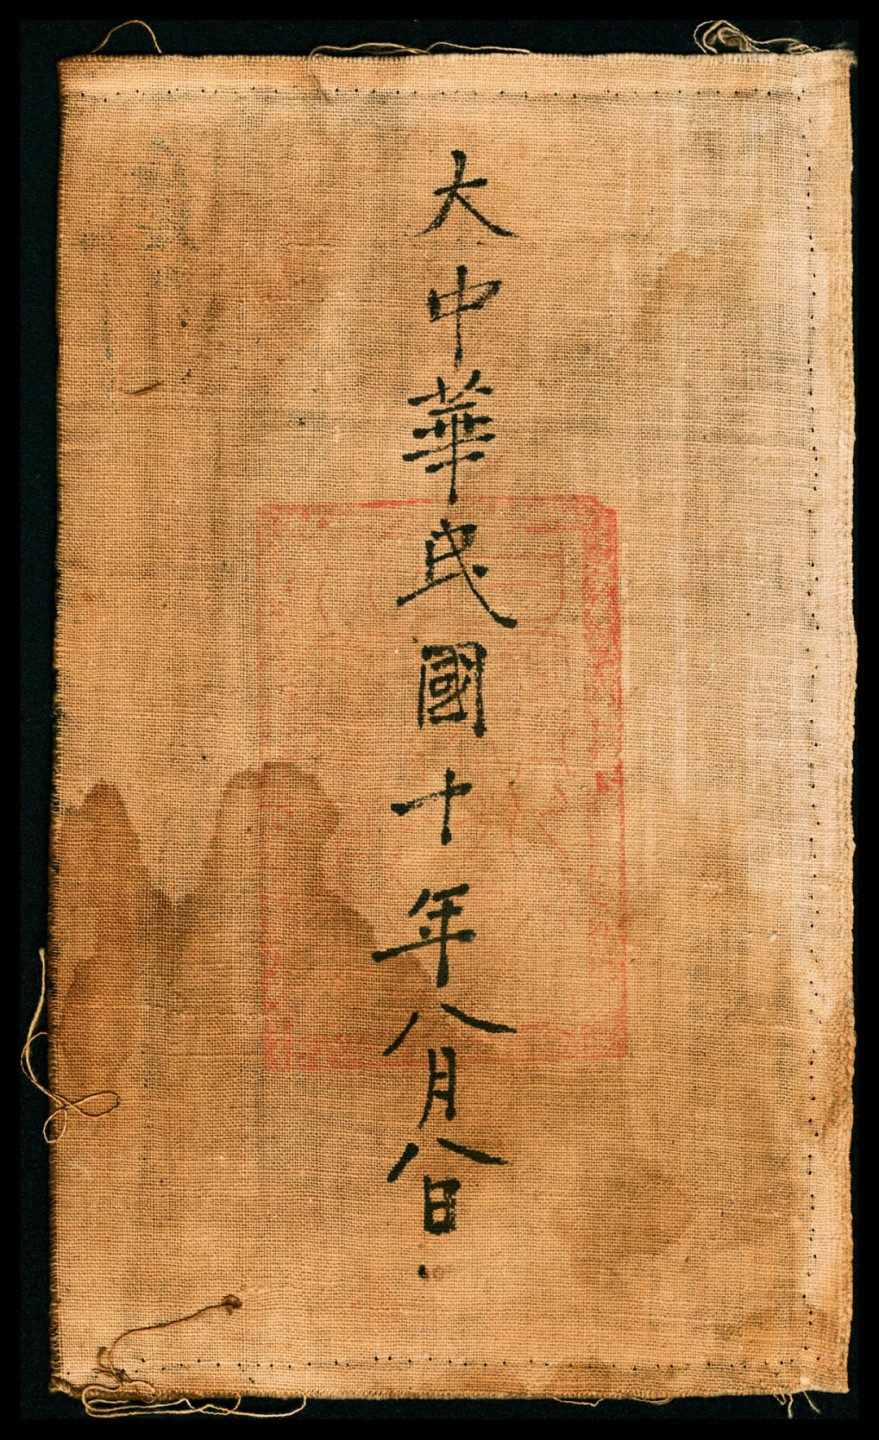 大中華民國十年八月八日